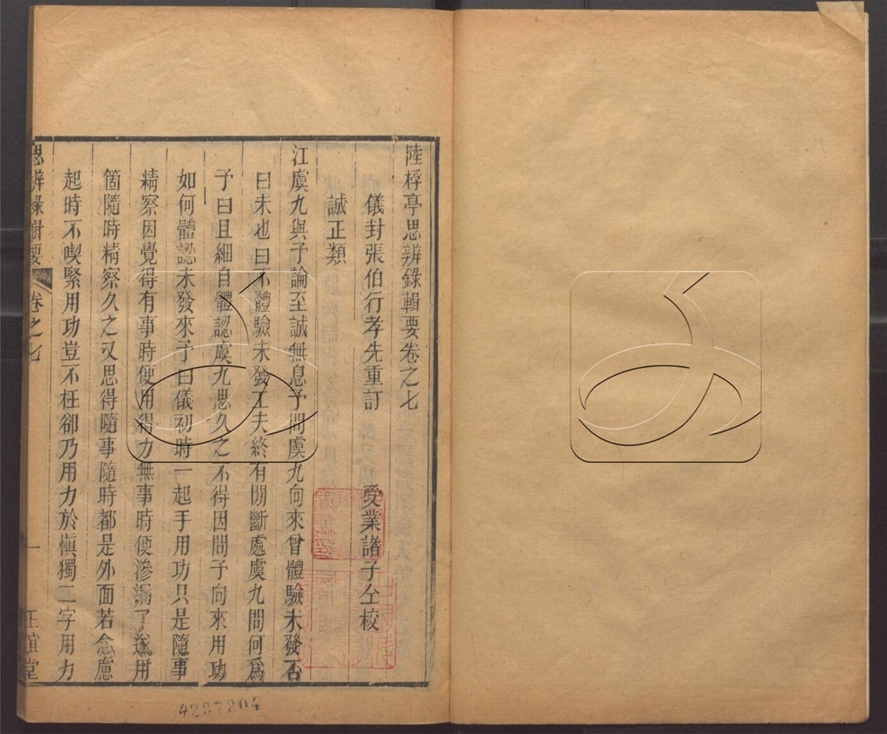 陸桴亭思辨錄輯要卷之七
儀封張伯行孝先重訂 受業諸子仝校
誠正類
江虞九與予論至誠無息予問虞九向來曾體驗未發否
曰未也曰不體驗未發工夫終有閒斷處虞九問何爲
予曰且細自體認虞九思久之不得因問予向來用功
如何體認未發來予曰儀初時一起手用功只是隨事
精察因覺得有事時便用得力無事時便滲漏了遂用
箇隨時精察久之又思得隨事隨時都是外面若念慮
起時不喫緊用功豈不枉卻乃用力於愼獨二字用力
思辨錄輯要 卷之七 一 正誼堂
4287204